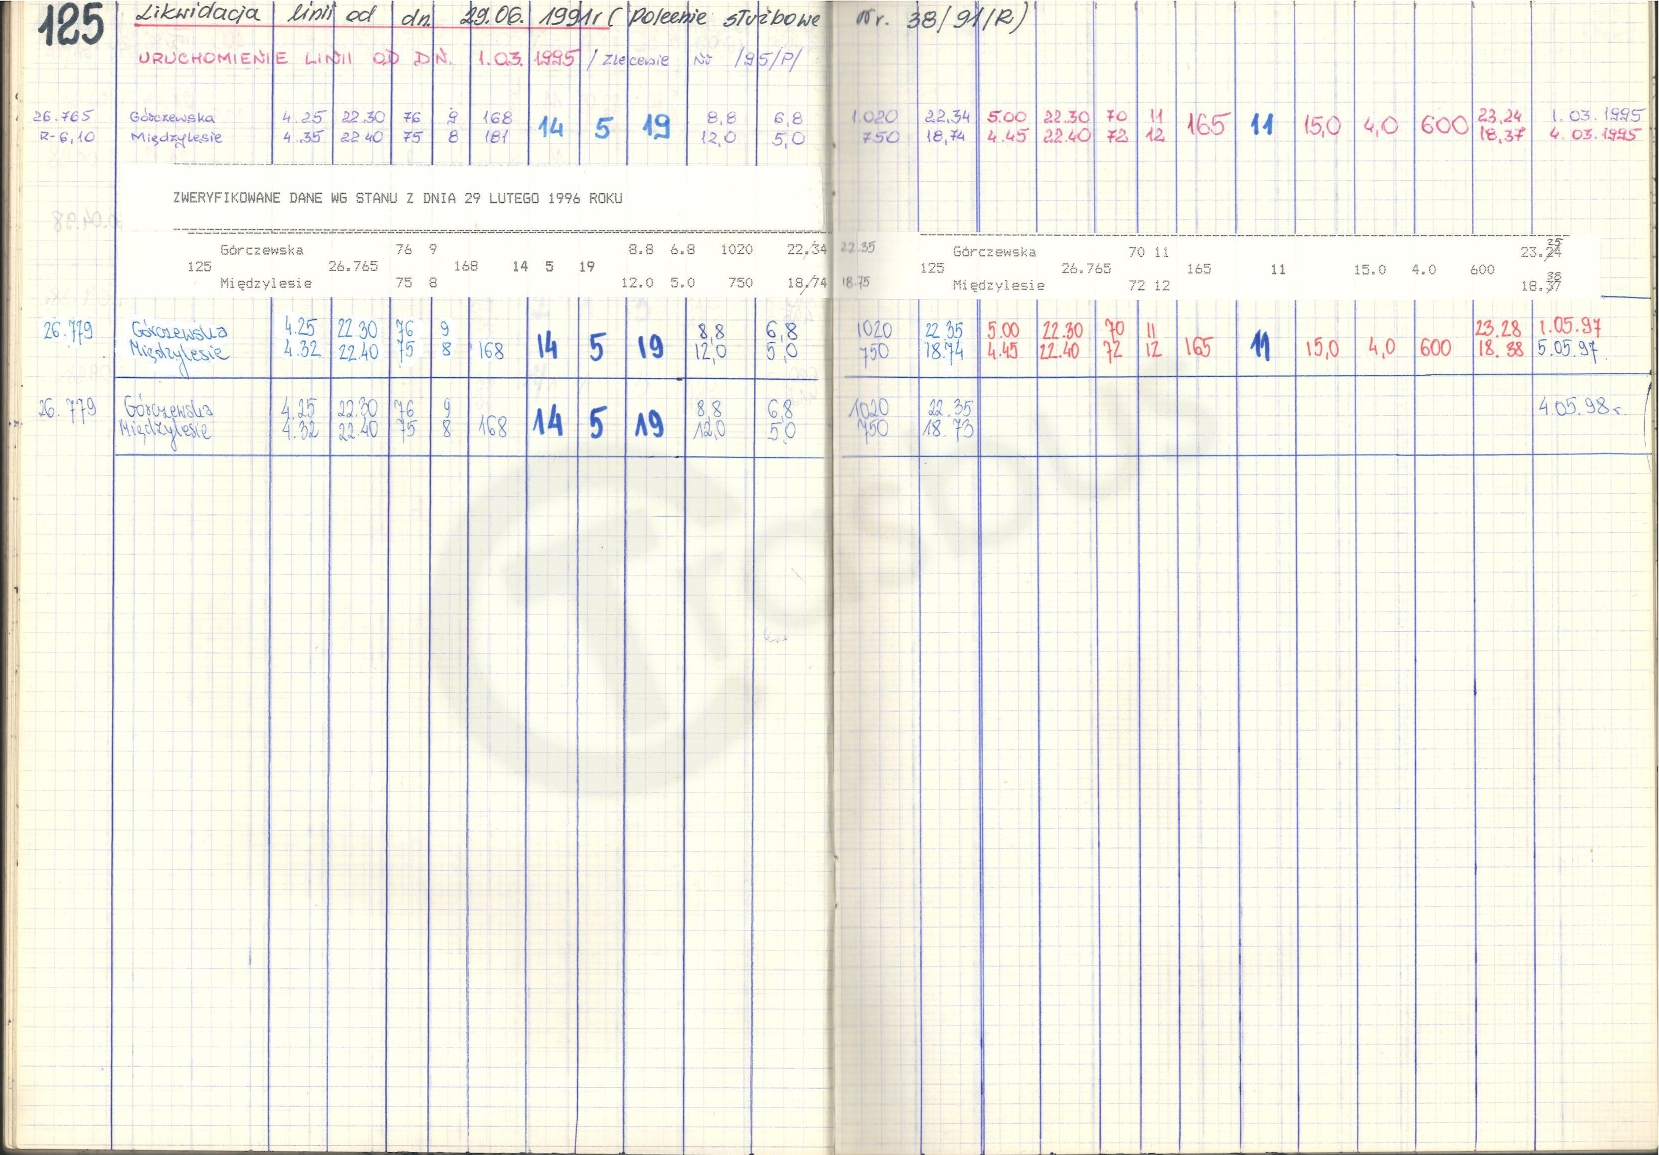 125 Likwidacja linii od dn. 29.06. 1991r ( polecenie służbowe Nr. 38/91/R)
URUCHOMIENIE LINII OD DŃ. 1.03. 1995 / Zlecenie Nr /95/P/
26.765 Górczewska 4.25 22.30 76 9 168 14 5 19 8,8 6,8 1.020 22,34 5.00 22.30 70 11 165 11 15,0 4,0 600 23,24 1.03.1995
R-6,10 Międzylesie 4.35 22.40 75 8 181 12,0 5,0 750 18,74 4.45 22.40 72 12 18,37 4.03.1995
ZWERYFIKOWANE DANE WG STANU Z DNIA 29 LUTEGO 1996 ROKU
Górczewska 76 9 8.8 6.8 1020 22.34 22.35 Górczewska 70 11 23.24 25
125 26.765 168 14 5 19 125 26.765 165 11 15.0 4.0 600
Międzylesie 75 8 12.0 5.0 750 18,74 18.75 Międzylesie 72 12 18.37 38
26.779 Górczewska 4.25 22.30 76 9 168 14 5 19 8,8 6,8 1020 22.35 5.00 22.30 70 11 165 11 15,0 4,0 600 23.28 1.05.97
Międzylesie 4.32 22.40 75 8 12,0 5,0 750 18.74 4.45 22.40 72 12 18.38 5.05.97
26.779 Górczewska 4.25 22.30 76 9 168 14 5 19 8,8 6,8 1020 22.35 4.05.98r.
Międzylesie 4.32 22.40 75 8 12,0 5,0 750 18.73
Trasbus